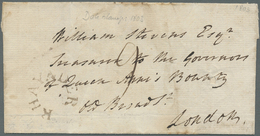 William Stevens Esqr.
Treasurer to the Governors
of Queen Anne's Bounty
Old Broad St.
London.